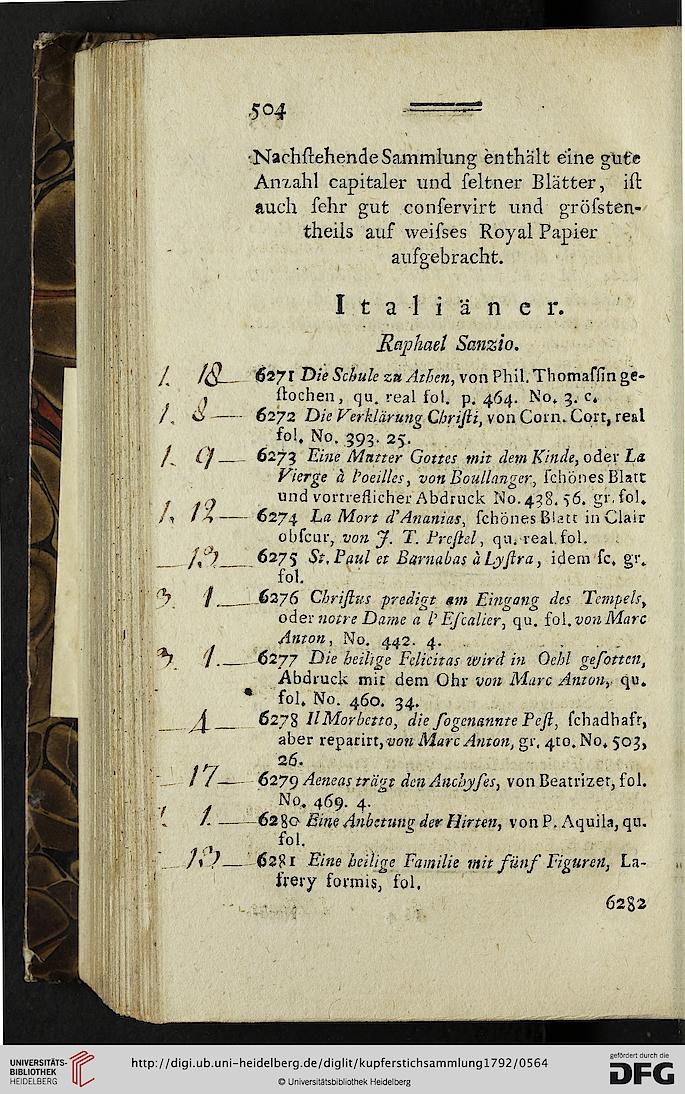 504
Nachſtehende Sammlung enthält eine gute
Anzahl capitaler und ſeltner Blätter, iſt
auch ſehr gut conſervirt und gröſsten-
theils auf weiſses Royal Papier
aufgebracht.
Italiäner.
Raphael Sanzio.
1. 18 6271 Die Schule zu Athen, von Phil. Thomaſſin ge-
ſtochen, qu. real fol. p. 464. No. 3. c.
1. 8 6272 Die Verklärung Chriſti, von Corn. Cort, real
fol. No. 393. 25.
1. 9 6273 Eine Mutter Gottes mit dem Kinde, oder La
Vierge à l'oeilles, von Boullanger, ſchönes Blatt
und vortreflicher Abdruck No. 438. 56. gr. fol.
1. 12 6274 La Mort d'Ananias, ſchönes Blatt in Clair
obſcur, von J. T. Preſtel, qu. real. fol.
13 6275 St. Paul et Barnabas à Lyſtra, idem ſc. gr.
fol.
3. 1 6276 Chriſtus predigt am Eingang des Tempels,
oder notre Dame a l'Eſcalier, qu. fol. von Marc
Anton, No. 442. 4.
3. 1. 6277 Die heilige Felicitas wird in Oehl geſotten,
Abdruck mit dem Ohr von Marc Anton, qu.
fol. No. 460. 34.
4 6278 Il Morbetto, die ſogenannte Peſt, ſchadhaft,
aber reparirt, von Marc Anton, gr. 4to. No. 503,
26.
17 6279 Aeneas trägt den Anchyſes, von Beatrizet, fol.
No. 469. 4.
1. 6280 Eine Anbetung der Hirten, von P. Aquila, qu.
fol.
13 6281 Eine heilige Familie mit fünf Figuren, La-
frery formis, fol.
6282
UNIVERSITÄTS-
BIBLIOTHEK
HEIDELBERG
http://digi.ub.uni-heidelberg.de/diglit/kupferstichsammlung1792/0564
© Universitätsbibliothek Heidelberg
gefördert durch die
DFG